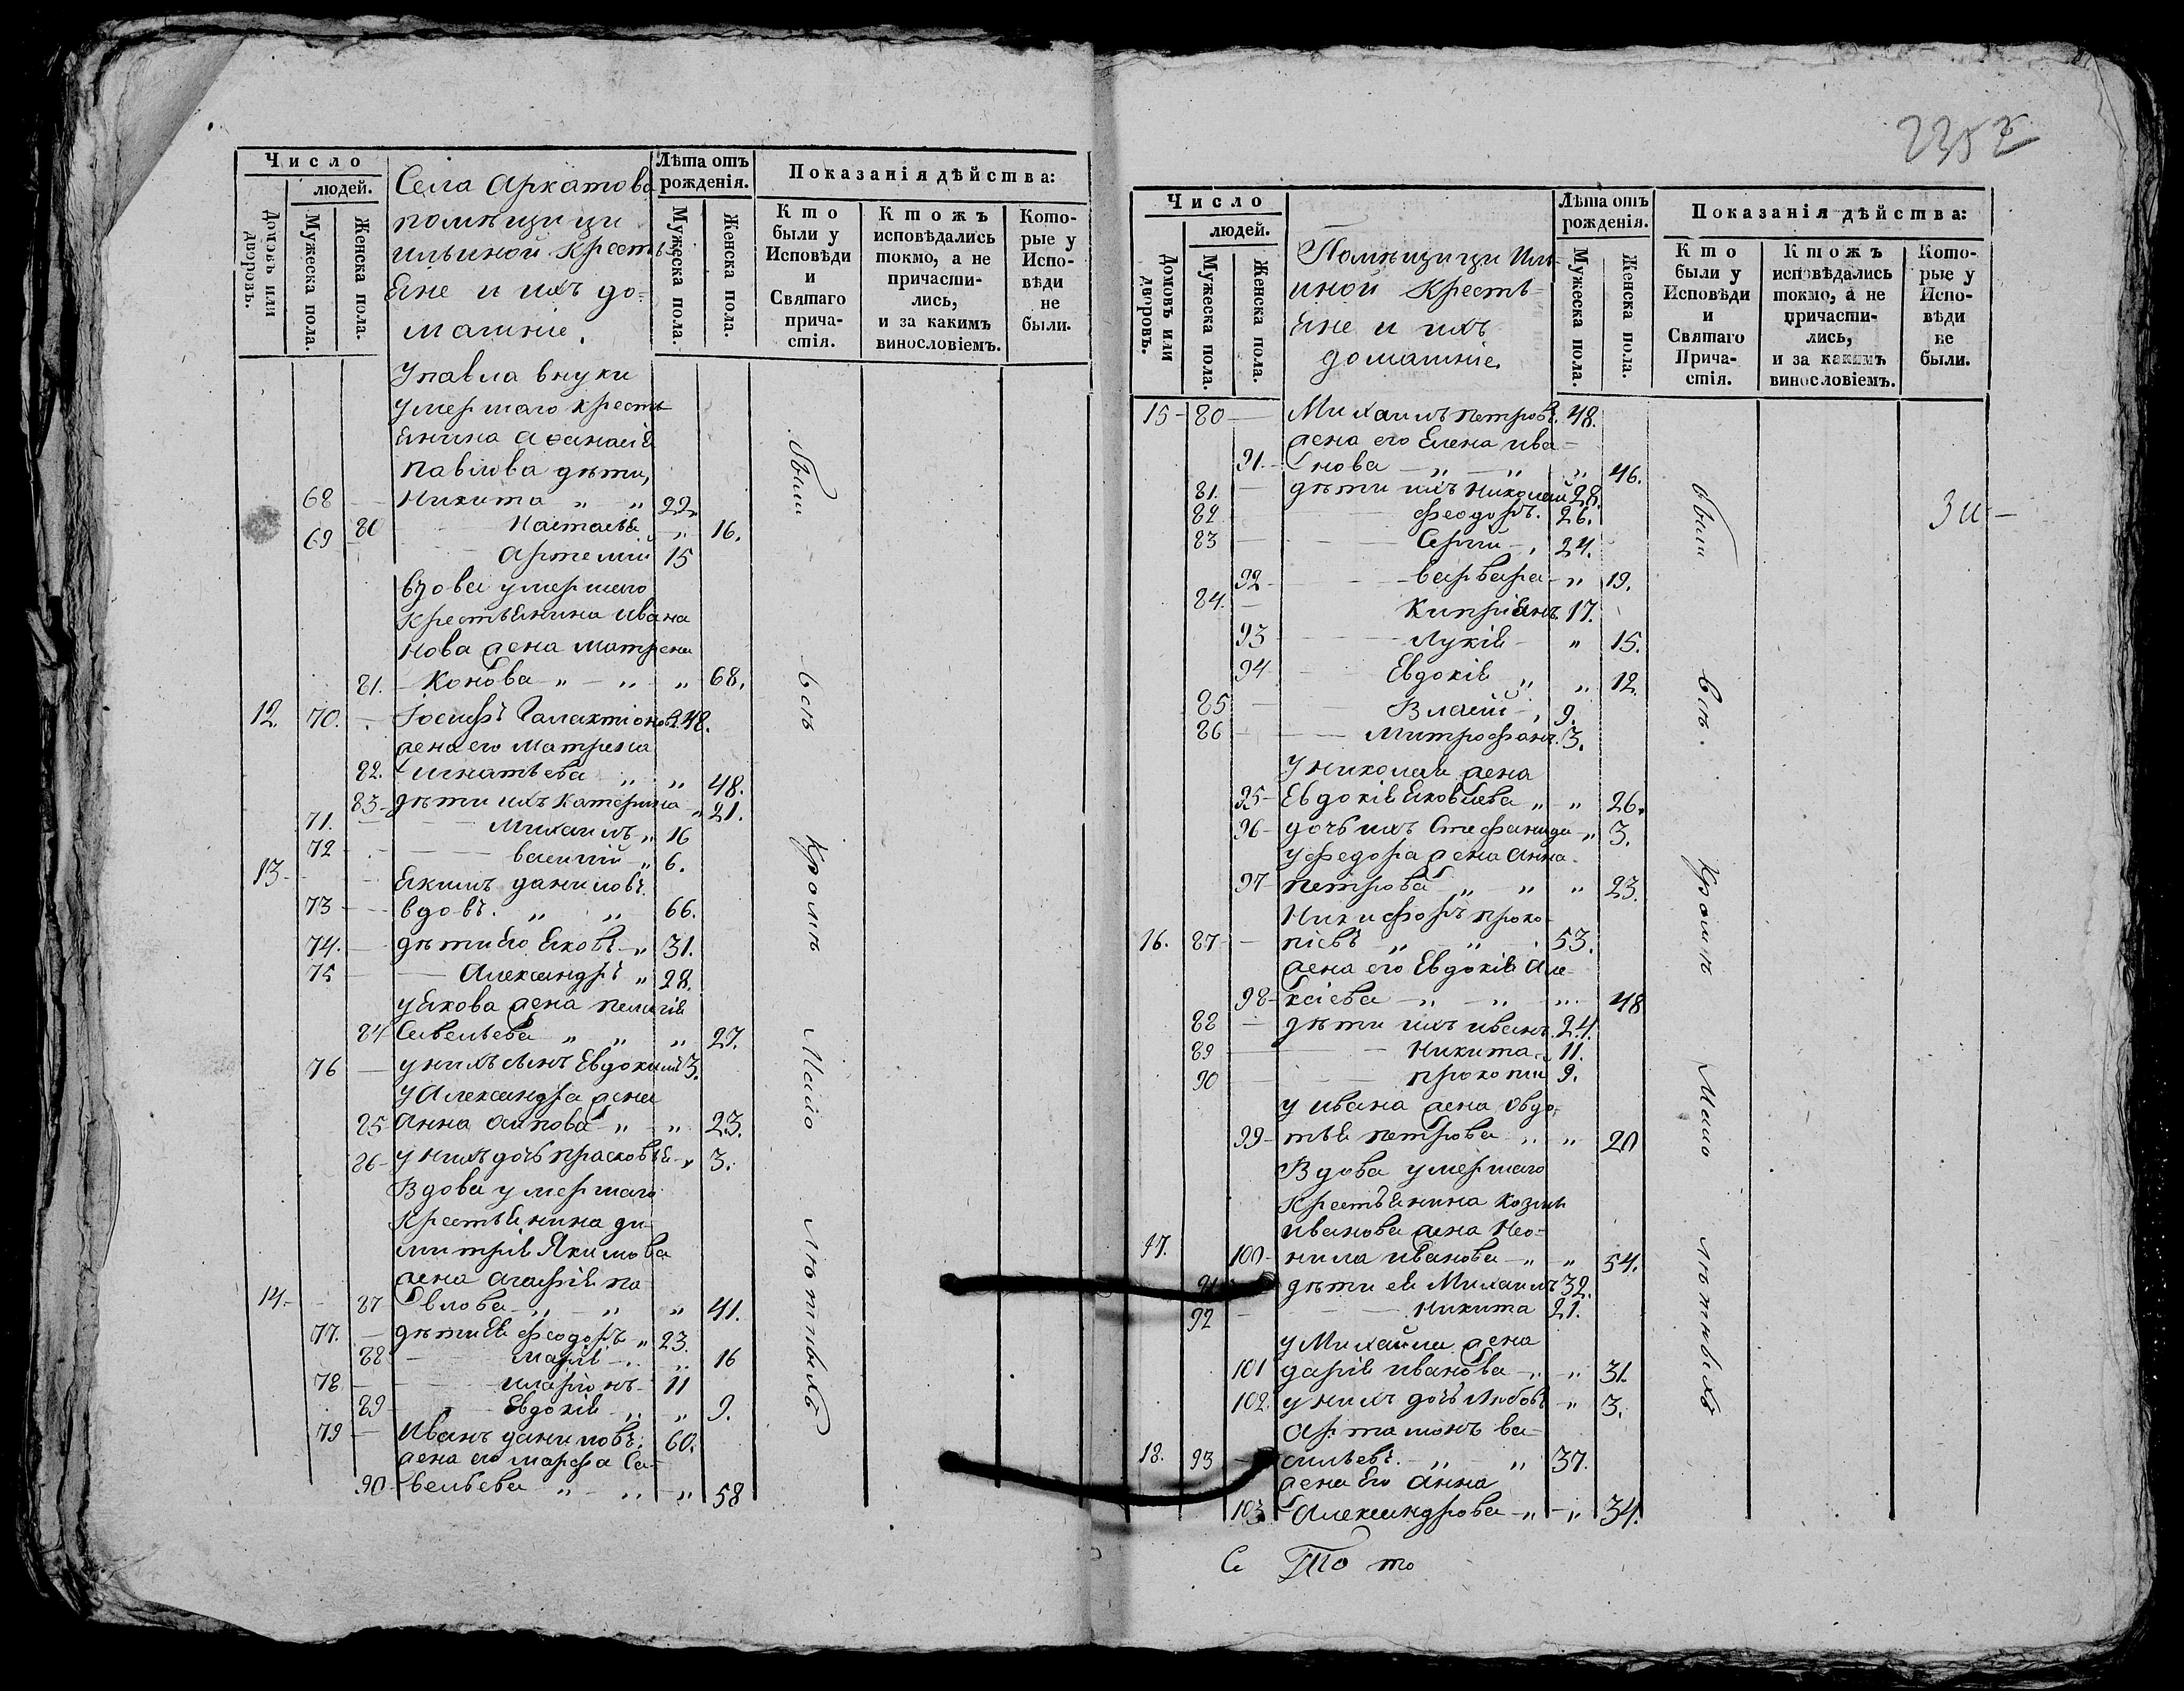 Число
людей.
Домовъ или дворовъ.
Мужеска пола.
Женска пола.
Села Аркатова
помѣщицы
ильиной Кресть
яне и ихъ до=
машніе.
Лѣта отъ рожденія.
Мужеска пола.
Женска пола.
Показанія дѣйства:
Кто были у Исповѣди и Святаго причастія.
Ктожъ исповѣдались токмо, а не причастились, и за какимъ винословіемъ.
Которые у Исповѣди не были.
У павла внуки
умершаго кресть
янина Афанасія
павлова дѣти,
68 — Никита „ „ 22
80 — Настасья „ 16.
69 — Артемии 15
вдова умершаго
крестьянина ива
нова жена матрена
81. — Конова „ — „ „ 68.
12. 70. — Іосифъ Галактіоновъ 48.
жена его матрена
82. игнатьева „ „ 48.
83 — дѣти ихъ катерина „ 21.
71. — Михаилъ „ 16
72 — василій „ 6.
13 — якимъ даниловъ
73 — вдовъ. „ „ 66.
74. — дѣти его яковъ „ 31.
75 — Александръ „ 28.
у якова жена пелагія
84 Савельева „ „ „ 27.
76 — у нихъ сынъ Евдокимъ 3.
у Александра жена
85 — анна осипова „ „ 23.
86 — у нихъ дочь прасковья „ 3.
Вдова умершаго
крестьянина ди
митрія Якимова
жена агафія па
14. — 87 влова — „ — „ „ 41.
77. — дѣти ея феодоръ „ 23.
88 — марія — „ „ 16
78 — иларіонъ — 11
89 — Евдокія „ „ 9.
79 — Иванъ даниловъ. 60.
жена его марфа Са=
90 — вельева „ — „ — „ 58
были
всѣ
кромѣ
Мало
лѣтныхъ
Число
людей.
Домовъ или дворовъ.
Мужеска пола.
Женска пола.
Помѣщицы Иль=
иной Кресть=
яне и ихъ
домашніе.
Лѣта отъ рожденія.
Мужеска пола.
Женска пола.
Показанія дѣйства:
Кто были у Исповѣди и Святаго Причастія.
Ктожъ исповѣдались токмо, а не причастились, и за какимъ винословіемъ.
Которые у Исповѣди не были.
15 — 80 — Михаилъ петровъ. 48.
жена его Елена ива=
91. — нова — „ — „ „ 46.
81. — дѣти ихъ николай 28.
82 — феодоръ. 26.
83 — Сергий — 24.
92 — варвара — „ 19.
84. — Кипріянъ. 17.
93 — Лукія — „ 15.
94 — Евдокія „ „ 12.
85 — Власий — 9.
86 — Митрофанъ. 3.
У николая жена
95 — Евдокія яковлева „ „ 26.
96 — дочь ихъ Стефанида „ 3.
у федора жена анна
97 — петрова „ „ „ 23.
Никифоръ проко
16. 87 — піевъ „ „ 53.
жена его Евдокія Але
98 — ксіева — „ — „ „ 48
88 — дѣти ихъ иванъ. 24.
89 — Никита „ 11.
90 — прокопии 9.
у ивана жена Овдо=
99 — тья петрова „ „ 20
Вдова умершаго
крестьянина козми
иванова жена Нео=
17. 100 — нила иванова — „ „ 54.
91 дѣти ея Михаилъ 32.
92 — Никита 21.
у Михайла жена
101 дарія иванова — „ „ 31.
102. у нихъ дочь Любовь „ 3.
Артамонъ ва=
18. 93 — сильевъ. — „ „ 37.
жена его Анна
103 Александрова — „ — „ 34.
были
всѣ.
Кромѣ
Мало
лѣтныхъ